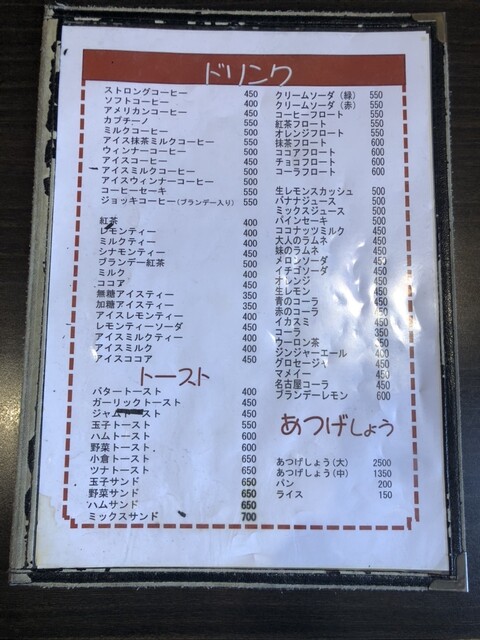 ドリンク
ストロングコーヒー 450
ソフトコーヒー 400
アメリカンコーヒー 450
カプチーノ 550
ミルクコーヒー 500
アイス抹茶ミルクコーヒー 550
ウィンナーコーヒー 500
アイスコーヒー 450
アイスミルクコーヒー 500
アイスウィンナーコーヒー 500
コーヒーセーキ 550
ジョッキコーヒー(ブランデー入り) 550
紅茶 400
レモンティー 400
ミルクティー 400
シナモンティー 450
ブランデー紅茶 500
ミルク 400
ココア 450
無糖アイスティー 350
加糖アイスティー 350
アイスレモンティー 400
レモンティーソーダ 450
アイスミルクティー 400
アイスミルク 400
アイスココア 450
トースト
バタートースト 400
ガーリックトースト 450
ジャムトースト 450
玉子トースト 550
ハムトースト 600
野菜トースト 600
小倉トースト 650
ツナトースト 650
玉子サンド 650
野菜サンド 650
ハムサンド 650
ミックスサンド 700
クリームソーダ(緑) 550
クリームソーダ(赤) 550
コーヒーフロート 550
紅茶フロート 550
オレンジフロート 550
抹茶フロート 600
ココアフロート 600
チョコフロート 600
コーラフロート 550
生レモンスカッシュ 500
バナナジュース 500
ミックスジュース 500
パインセーキ 500
ココナッツミルク 450
大人のラムネ 450
妹のラムネ 450
メロンソーダ 450
イチゴソーダ 450
オレンジ 450
生レモン 450
青のコーラ 450
赤のコーラ 450
イカスミ 450
コーラ 350
ウーロン茶 350
ジンジャーエール 400
グロセージャ 450
マメイー 450
名古屋コーラ 450
ブランデーレモン 600
あつげしょう
あつげしょう(大) 2500
あつげしょう(中) 1350
パン 200
ライス 150